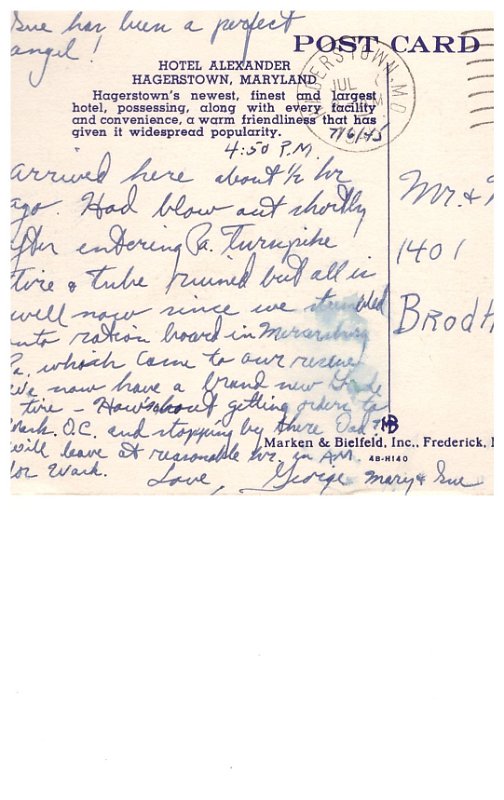 Sue has been a perfect
angel!
POST CARD
HOTEL ALEXANDER
HAGERSTOWN, MARYLAND
Hagerstown's newest, finest and largest
hotel, possessing, along with every facility
and convenience, a warm friendliness that has
given it widespread popularity.
HAGERSTOWN, MD.
JUL
7/6/45
4:50 P.M.
arrived here about 1/2 hr
ago. Had blow out shortly
after entering Pa. Turnpike
tire & tube ruined but all is
well now since we stumbled
into ration board in
Pa. which came to our rescue
We now have a brand new Grade
tire - How's about getting orders to
Wash. D.C. and stopping by there Dad?
will leave at reasonable hr. in AM.
for Wash.
Love, George Mary & Sue
Mr. &
1401
Brodh
Marken & Bielfeld, Inc., Frederick,
4B-H140